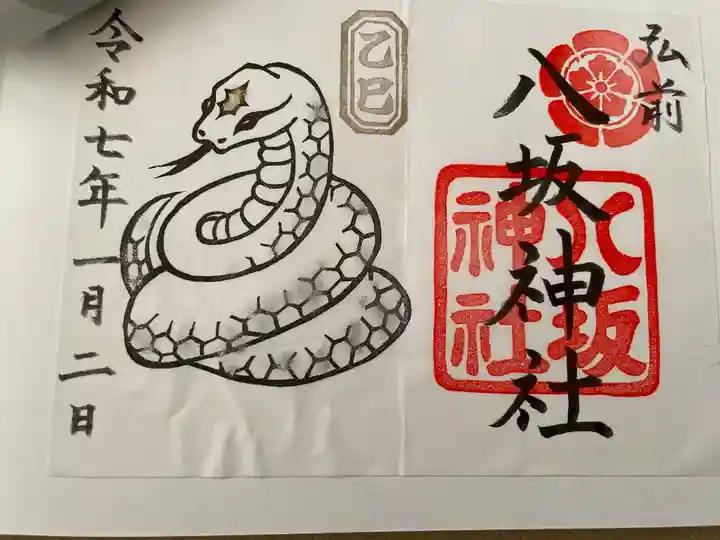 弘前
八坂神社
八坂
神社
乙巳
令和七年一月二日